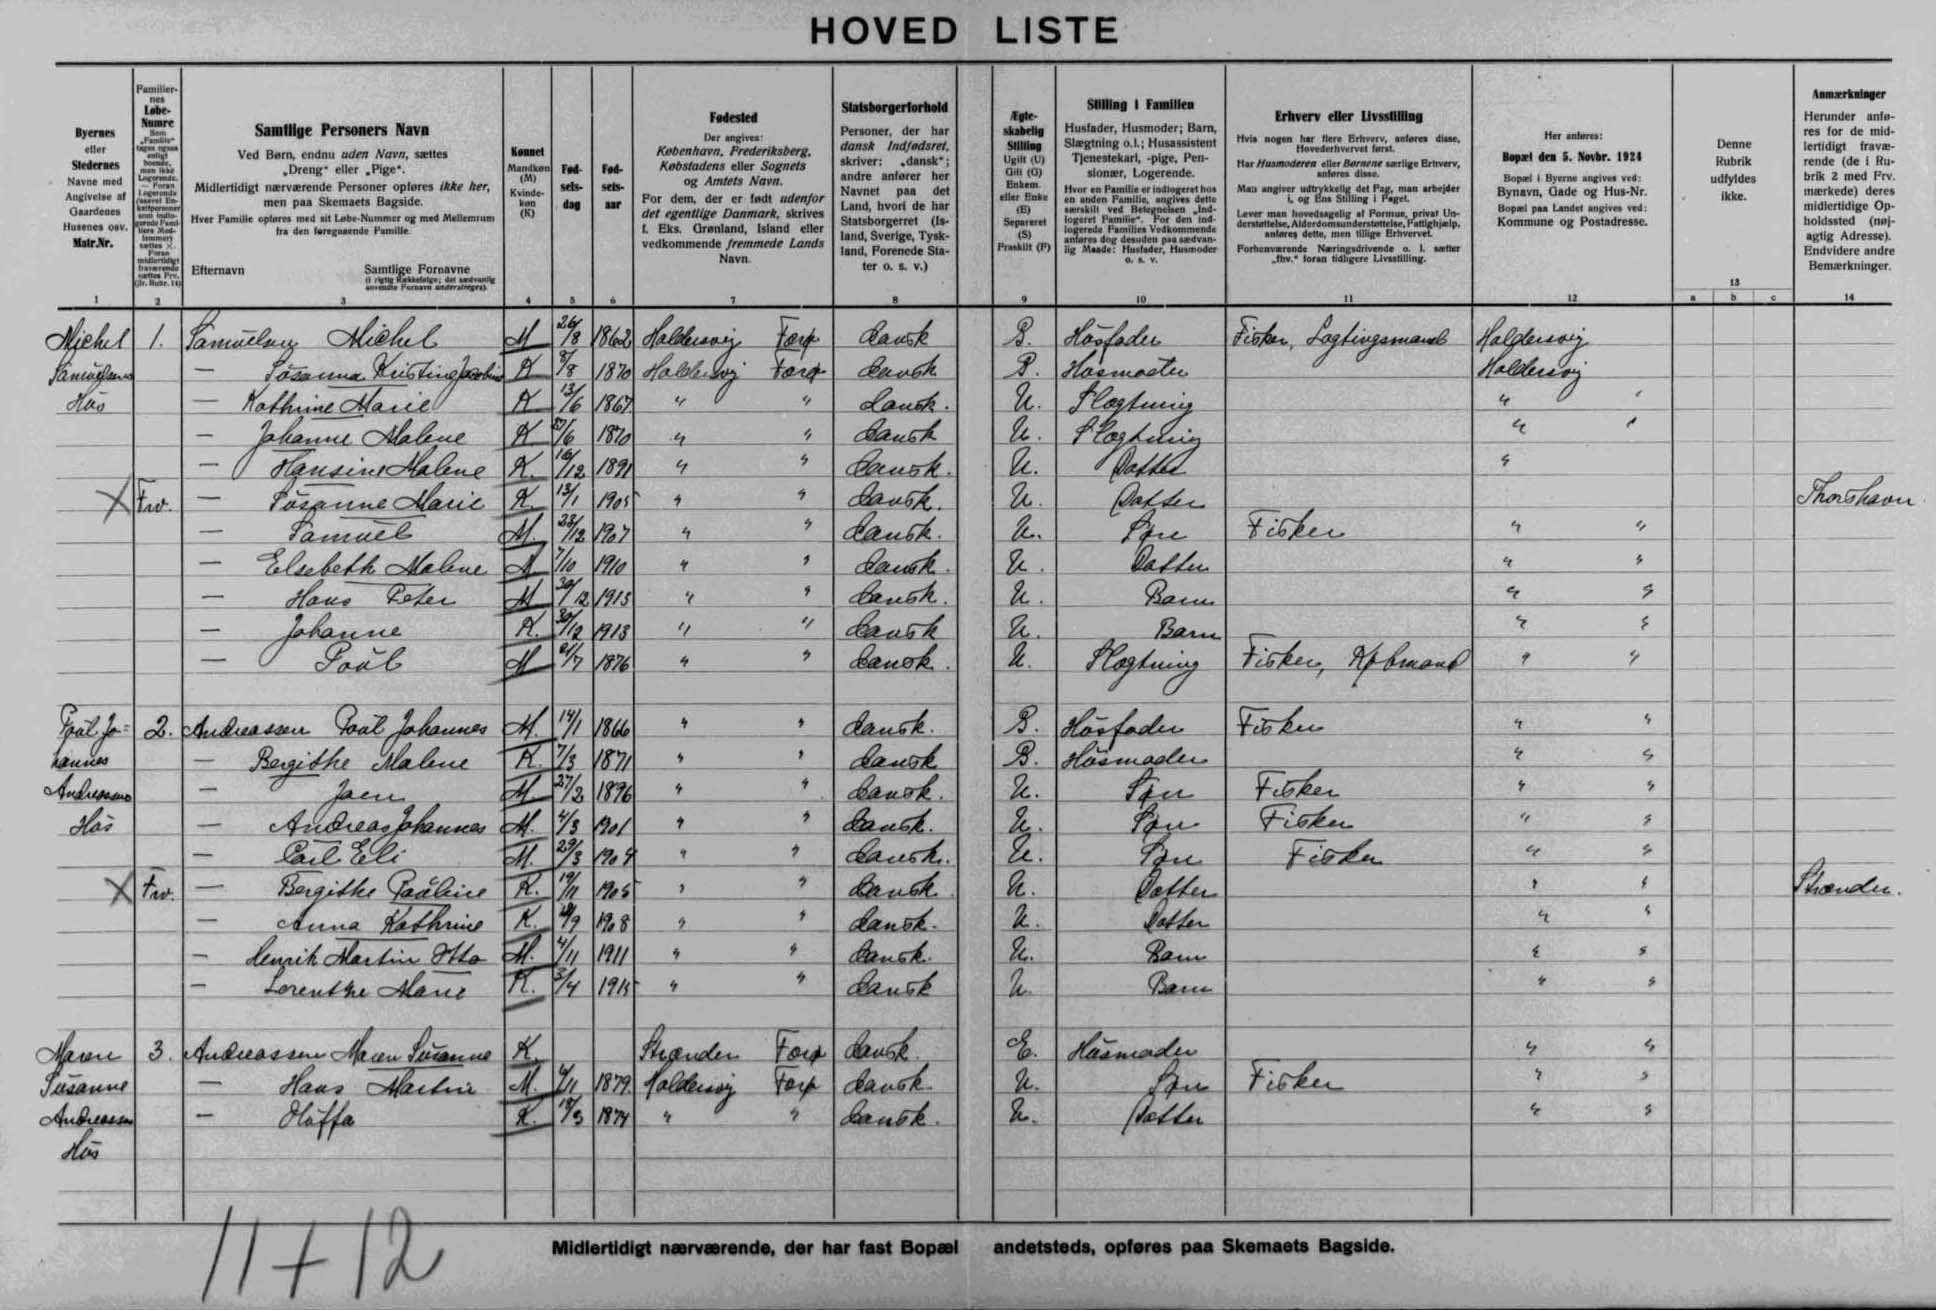 HOVED LISTE
Byernes
eller
Stedernes
Navne med
Angivelse af
Gaardenes
Husenes osv.
Matr.Nr.
1
Familier-
nes
Løbe-
Numre
2
Samtlige Personers Navn
Ved Børn, endnu uden Navn, sættes
„Dreng“ eller „Pige“.
Midlertidigt nærværende Personer opføres ikke her,
men paa Skemaets Bagside.
Hver Familie opføres med sit Løbe-Nummer og med Mellemrum
fra den foregaaende Familie.
Efternavn Samtlige Fornavne
(i rigtig Rækkefølge; det sædvanlig
anvendte Fornavn understreges).
3
Kønnet
Mandkøn
(M)
Kvinde-
køn
(K)
4
Fød-
sels-
dag
5
Fød-
sels-
aar
6
Fødested
Der angives:
København, Frederiksberg,
Købstadens eller Sognets
og Amtets Navn.
For dem, der er født udenfor
det egentlige Danmark, skrives
f. Eks. Grønland, Island eller
vedkommende fremmede Lands
Navn.
7
Statsborgerforhold
Personer, der har
dansk Indfødsret,
skriver: „dansk“;
andre anfører her
Navnet paa det
Land, hvori de har
Statsborgerret (Is-
land, Sverige, Tysk-
land, Forenede Sta-
ter o. s. v.)
8
Ægte-
skabelig
Stilling
Ugift (U)
Gift (G)
Enkem.
eller Enke
(E)
Separeret
(S)
Fraskilt (F)
9
Stilling i Familien
Husfader, Husmoder; Barn,
Slægtning o.l.; Husassistent
Tjenestekarl, -pige, Pen-
sionær, Logerende.
Hvor en Familie er indlogeret hos
en anden Familie, angives dette
særskilt ved Betegnelsen „Ind-
logeret Familie“. For den ind-
logerede Families Vedkommende
anføres dog desuden paa sædvan-
lig Maade: Husfader, Husmoder
o. s. v.
10
Erhverv eller Livsstilling
Hvis nogen har flere Erhverv, anføres disse,
Hovederhvervet først.
Har Husmoderen eller Børnene særlige Erhverv,
anføres disse.
Man angiver udtrykkelig det Fag, man arbejder
i, og Ens Stilling i Faget.
Lever man hovedsagelig af Formue, privat Un-
derstøttelse, Alderdomsunderstøttelse, Fattighjælp,
anføres dette, men tillige Erhvervet.
Forhenværende Næringsdrivende o. l. sætter
„fhv.“ foran tidligere Livsstilling.
11
Her anføres:
Bopæl den 5. Novbr. 1924
Bopæl i Byerne angives ved:
Bynavn, Gade og Hus-Nr.
Bopæl paa Landet angives ved:
Kommune og Postadresse.
12
Denne
Rubrik
udfyldes
ikke.
13
a b c
Anmærkninger
Herunder anfø-
res for de mid-
lertidigt fravæ-
rende (de i Ru-
brik 2 med Frv.
mærkede) deres
midlertidige Op-
holdssted (nøj-
agtig Adresse).
Endvidere andre
Bemærkninger.
14
Michel 1. Samuelsen Michel M 26/8 1862 Haldersvig Færø dansk G. Húsfader Fisker, Lagtingsmand Haldersvig
Samuelsens — Súsanna Kristine Jacobine K 8/8 1870 Haldersvig Færø dansk G. Húsmoder Haldersvig
Hús — Kathrine Marie K 13/6 1867 " " dansk. U. Slægtning " "
— Johanne Malene K 27/6 1870 " " dansk U. Slægtning " "
— Hansine Malene K. 16/12 1891 " " dansk. U. Datter "
X Frv. — Súsanne Marie K. 13/1 1905 " " dansk. U. Datter Thorshavn.
— Samúel M. 23/12 1907 " " dansk. U. Søn Fisker " "
— Elsebeth Malene 7/10 1910 " " dansk. U. Datter " "
— Hans Peter M 30/12 1913 " " dansk. U. Barn " "
— Johanne K. 30/12 1913 " " dansk U. Barn " "
— Poúl M 21/7 1876 " " dansk. U. Slægtning Fisker, Købmand " "
Poúl Jo= 2. Andreassen Poúl Johannes M. 14/1 1866 " " dansk. G. Húsfader Fisker " "
hannes — Bergithe Malene K. 7/3 1871 " " dansk G. Húsmoder " "
Andreassens — Joen M. 27/2 1896 " " dansk. U. Søn Fisker " "
Hús — Andreas Johannes M. 4/3 1901 " " dansk. U. Søn Fisker " "
— Eli M. 29/3 " " dansk. U. Søn Fisker " "
X Frv. — Bergithe Paúline K. 19/11 1905 " " dansk. U. Datter " " Strænder.
— Anna Kathrine K. 1908 " " dansk. U. Datter " "
— Henrik Martin Otto M. 4/11 1911 " " dansk. U. Barn " "
— Lorentze Marie K. 3/4 1915 " " dansk U. Barn " "
Maren 3. Andreassen Maren Súsanne K. Strænder Færø dansk. E. Húsmoder " "
Súsanne — Hans Martin M. 4/11 1879. Haldersvig Færø dansk. U. Søn Fisker " "
Andreassens — K. 18/3 1874 " " dansk. U. Datter " "
Hús
11 + 12
Midlertidigt nærværende, der har fast Bopæl andetsteds, opføres paa Skemaets Bagside.